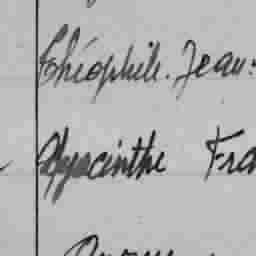 Théophile. Jean.
Hyacinthe Fra